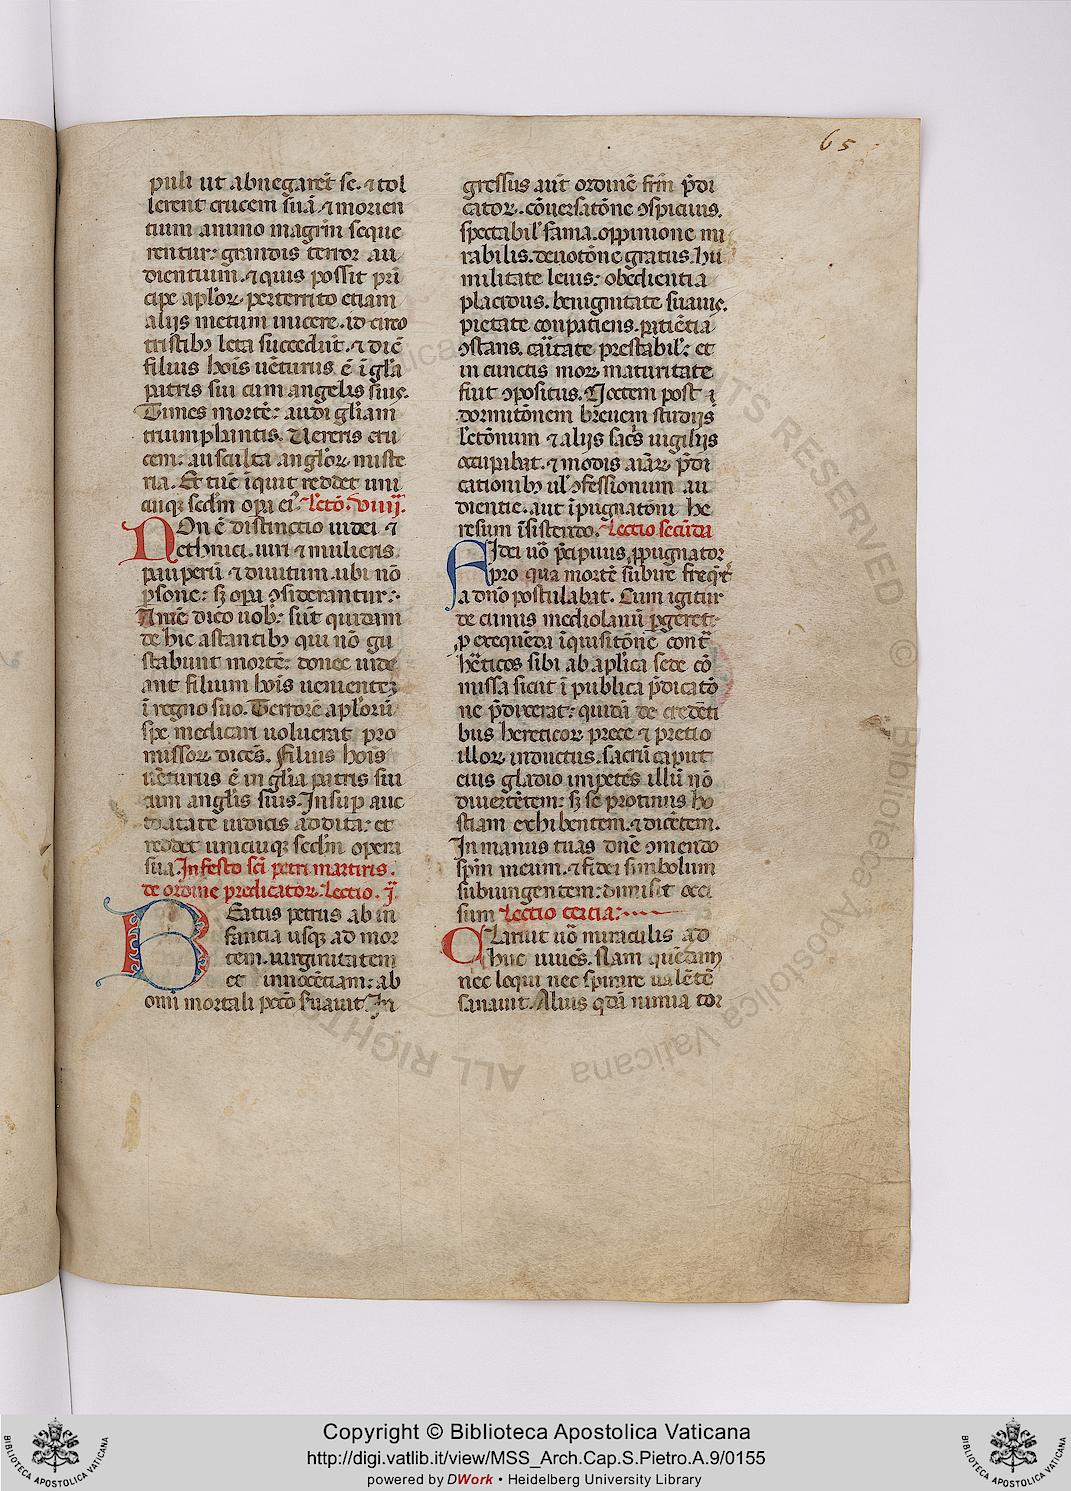 65
puli ut abnegarēt se. ⁊ tol
lerent crucem suā. ⁊ morien
tium animo magrm̄ seque
rentur: grandis terror au
dientium. ⁊ quis possit prī
cipe aplōꝝ perterrito etiam
alijs metum inicere. id circo
tristibꝫ leta succedūt. ⁊ dic̄
filius hoīs uēturus ē ī gl̄a
patris sui cum angelis suis.
Times mortē: audi gl̄iam
triumphantis. Uereris cru
cem: ausculta angl̄oꝝ miste
ria. Et tūc īquit reddet uni
cuiqꝫ scdm̄ opa ei᷒. Lectō. viiij.
Non ē distinctio iudei ⁊
ethnici. uiri ⁊ mulieris.
paupeꝝ ⁊ diuitum. ubi nō
psone: sꝫ opa ꝯsiderantur:
Amē dico uob̄: sūt quidam
de hic astantibꝫ qui nō gu
stabunt mortē: donec uide
ant filium hoīs uenientez
ī regno suo. Terrorē aplōrū
spe medicari uoluerat pro
missoꝝ dicēs. Filius hoīs
uēturus ē in gl̄ia patris sui
cum angl̄is suis. Insup auc
toritate iudicis addita: et
reddet unicuiqꝫ scdm̄ opera
sua. In festo sc̄i petri martiris.
de ordine predicatoꝝ. Lectio. j.
Beatus petrus ab in
fancia usqꝫ ad mor
tem. uirginitatem
et innocētiam: ab
omī mortali pctō suauit. In
gressus aut̄ ordinē frm̄ p̄di
catoꝝ. cōuersatōne ꝯspicuus.
spectabil' fama. oppinione mi
rabilis. deuotōne gratus. hu
militate leuis: obedientia
placidus. benignitate suauis.
pietate conpatiens. patiētia
ꝯstans. caītate prestabil': et
in cunctis moꝝ maturitate
fiut ꝯpositus. Noctem post ī
dormitōnem breuem studijs
lectōnum ⁊ alijs sacīs uigilijs
occupabat. ⁊ modis aīaꝝ p̄di
cationibꝫ ul' ꝯfessionum au
dientie. aut īpugnatōni he
resum īsistendo. Lectio secūda
Fidei uō p̄cipuus ppugnator
pro qua mortē subire freq̄t̄
a dn̄o postulabat. Cum igitur
de cumis mediolanū pgeret:
p exequēda īquisitōne cont̄
hēticos sibi ab aplīca sede cō
missa sicut ī publica p̄dicatō
ne p̄dixerat: quidā de credēti
bus hereticoꝝ prece ⁊ pretio
illoꝝ inductus. sacrū caput
eius gladio impetēs illū nō
diuertētem: sꝫ se protinus ho
stiam exhibentem. ⁊ dicētem.
In manus tuas dn̄e ꝯmendo
spm̄ meum. ⁊ fidei simbolum
subiungentem: dimisit occi
sum Lectio tercia:
Claruit uō miraculis ad
huc uiuēs. Nam quēdam
nec loqui nec spirare ualētē
sanauit. Alius qdā nimia tor
ALL RIGHTS RESERVED © Biblioteca Apostolica Vaticana
BIBLIOTECA APOSTOLICA VATICANA
Copyright © Biblioteca Apostolica Vaticana
http://digi.vatlib.it/view/MSS_Arch.Cap.S.Pietro.A.9/0155
powered by DWork • Heidelberg University Library
BIBLIOTECA APOSTOLICA VATICANA